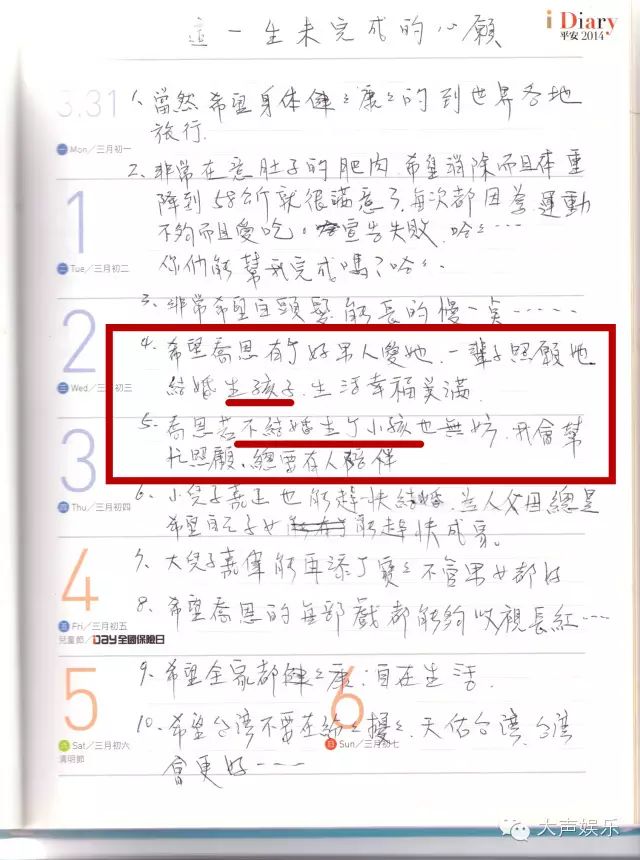 這一生未完成的心願
i Diary
平安 2014
3.31
1. 當然希望身体健々康々的到世界各地
旅行.
一 Mon／三月初一
2. 非常在意肚子的肥肉.希望消除而且体重
降到58公斤就很滿意了.每次都因為運動
1
不夠而且愛吃。宣告失敗.哈々……
二 Tue／三月初二
你们能幫我完成嗎?哈々..
3. 非常希望白頭髮能長的慢一点.....
2
4. 希望喬恩有个好男人愛她.一輩子照顧她
三 Wed／三月初三
結婚生孩子.生活幸福美滿.
3
5. 喬恩若不結婚生个小孩也無妨.我會幫
忙照顧.總要有人陪伴
四 Thu／三月初四
6. 小兒子嘉正也能趕快結婚.為人父母總是
希望自己子女能趕快成家。
4
7. 大兒子嘉偉能再添个寶々不管男女都好
五 Fri／三月初五
8. 希望喬恩的每部戲都能夠收視長紅....
兒童節／iDay全國保險日
5
9. 希望全家都健々康.自在生活.
6
10. 希望台湾不要在紛々擾々.天佑台湾.台湾
六 Sat／三月初六
日 Sun／三月初七
清明節
會更好....
大声娱乐